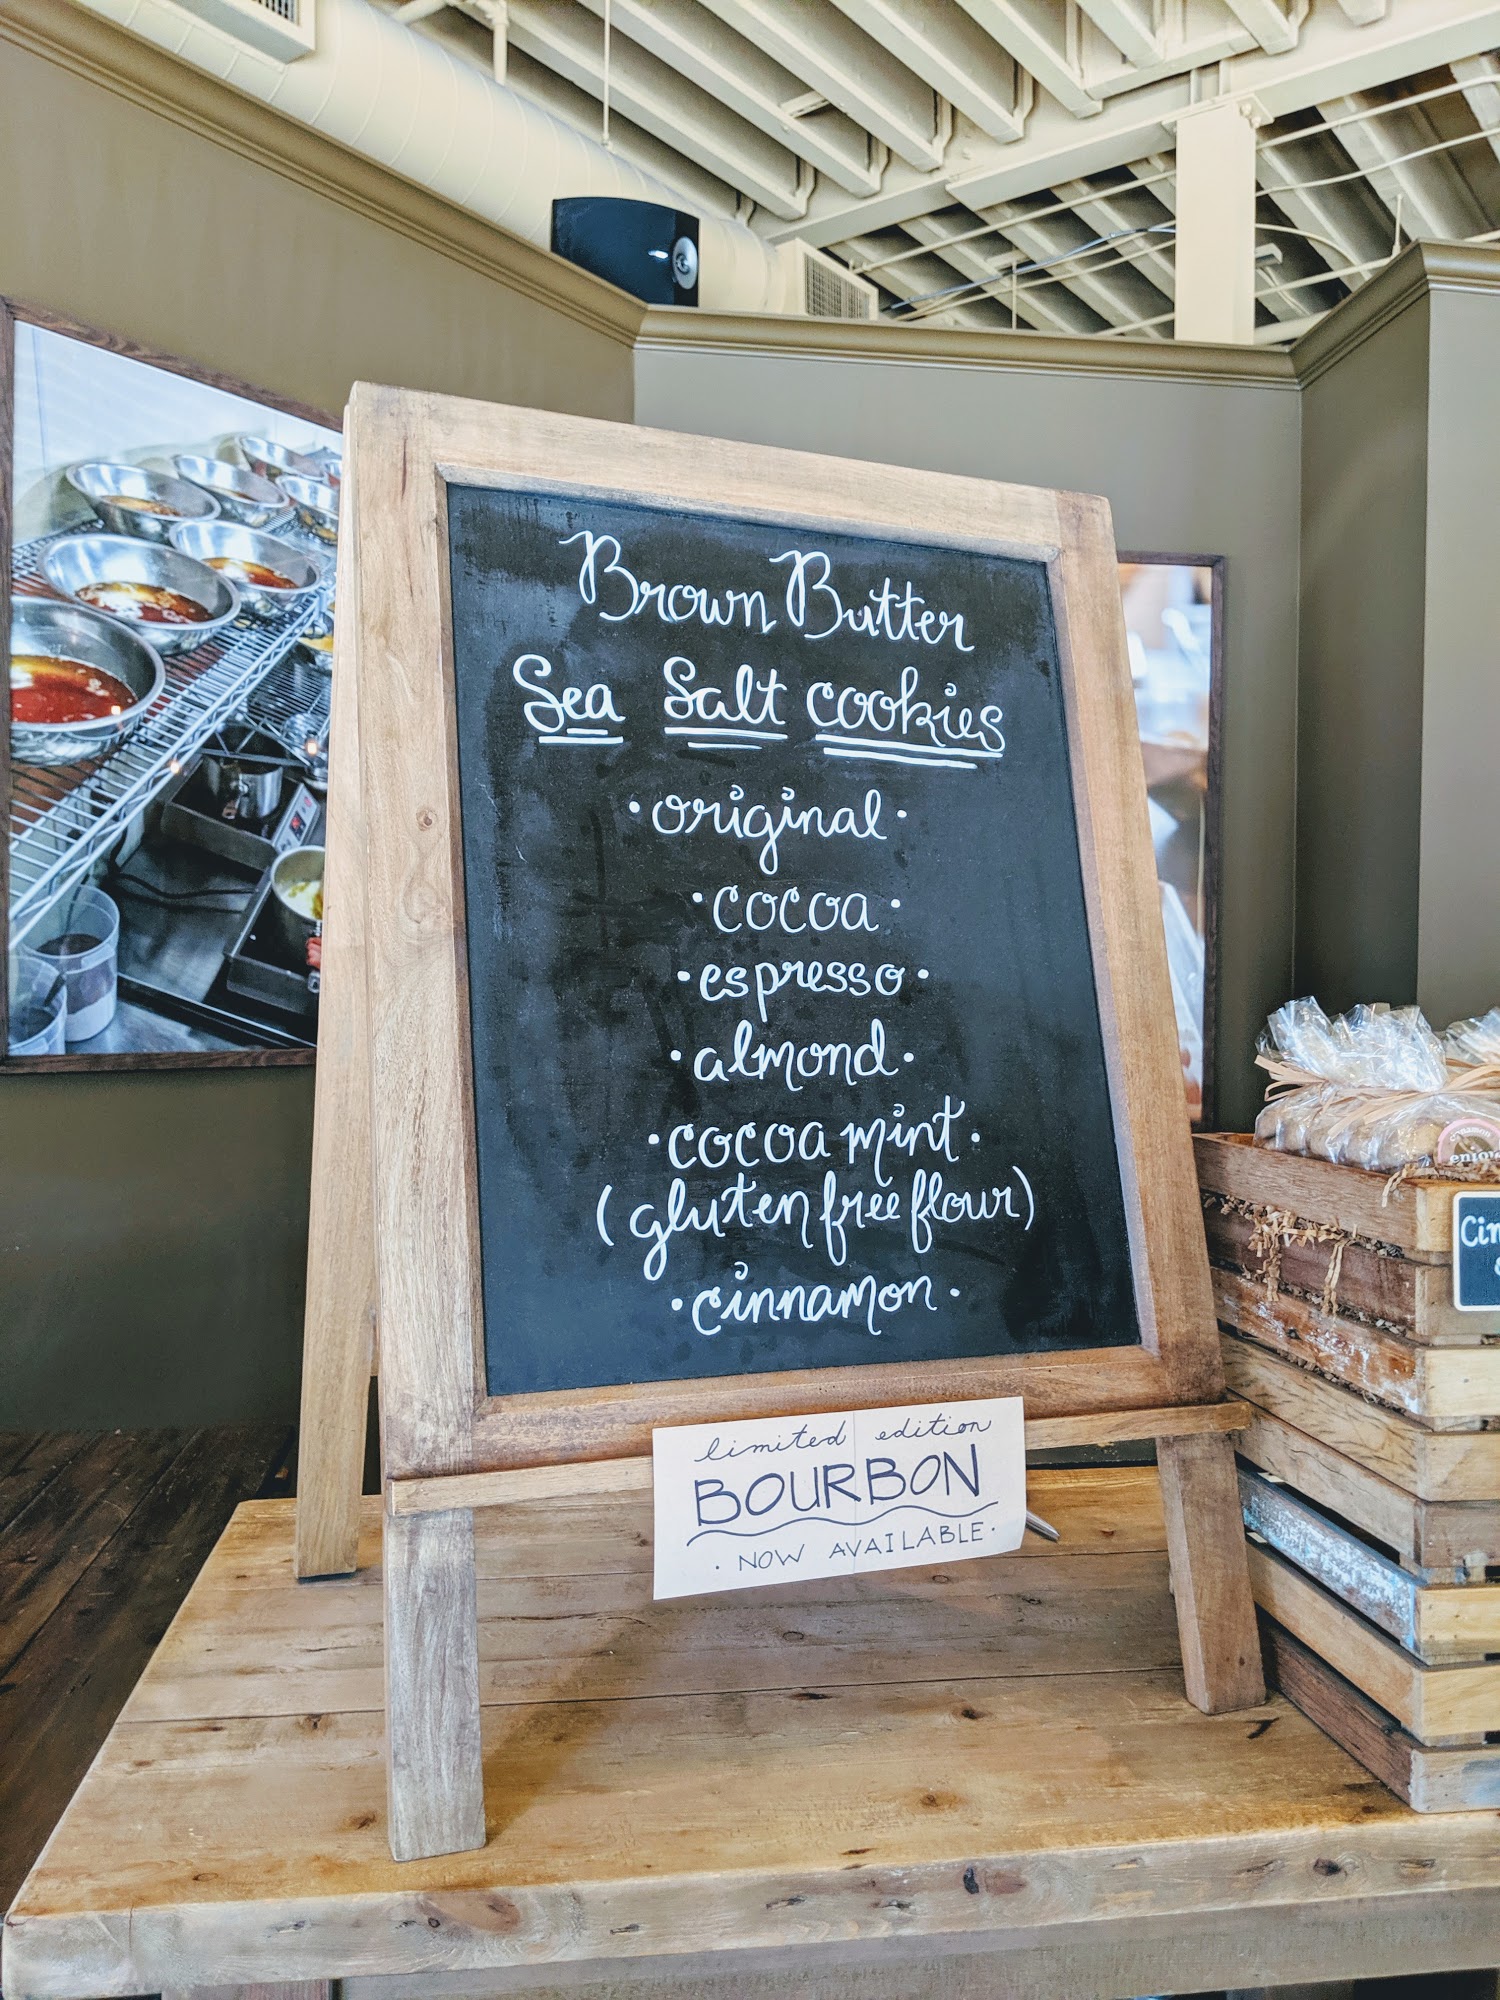 Brown Butter
Sea Salt cookies
• original •
• cocoa •
• espresso •
• almond •
• cocoa mint •
(gluten free flour)
• cinnamon •
limited edition
BOURBON
• NOW AVAILABLE •
cinnamon
enjoy